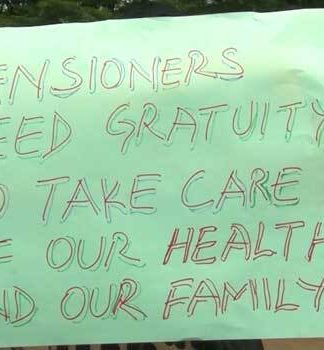 ENSIONERS
EED GRATUITY
O TAKE CARE
F OUR HEALTH
ND OUR FAMILY